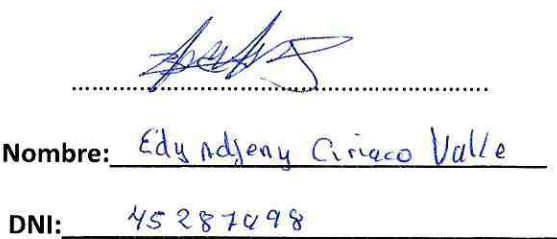 Nombre: Edy Adjeny Ciriaco Valle
DNI: 45287498